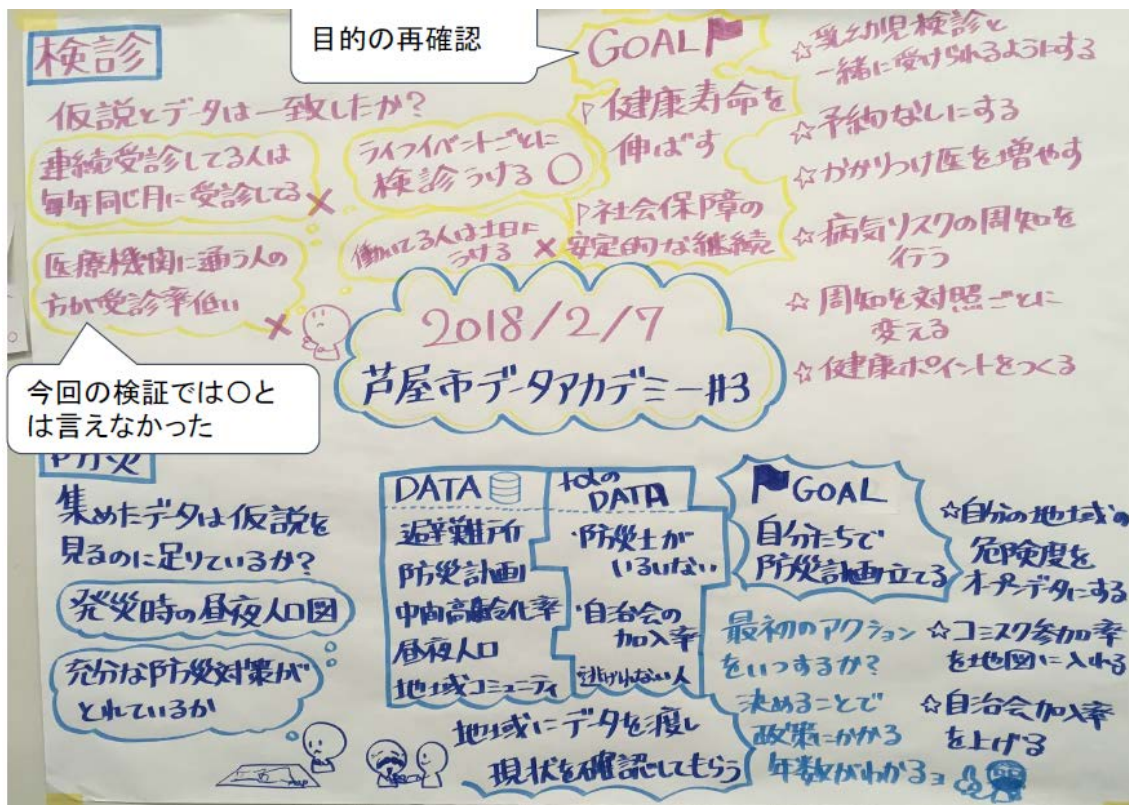 検診
目的の再確認
仮説とデータは一致したか?
連続受診してる人は
毎年同じ月に受診してる
×
ライフイベントごとに
検診うける ○
医療機関に通う人の
方が受診率低い
×
働いてる人は土日に
うける ×
今回の検証では○と
は言えなかった
GOAL
健康寿命を
伸ばす
社会保障の
安定的な継続
☆乳幼児検診と
一緒に受けられるようにする
☆予約なしにする
☆かかりつけ医を増やす
☆病気リスクの周知を
行う
☆周知を対照ごとに
変える
☆健康ポイントをつくる
2018/2/7
芦屋市データアカデミー#3
防災
集めたデータは仮説を
見るのに足りているか?
発災時の昼夜人口図
充分な防災対策が
とれているか
DATA
避難所
防災計画
高齢化率
昼夜人口
地域コミュニティ
+αの
DATA
・防災士が
いるいない
・自治会の
加入率
逃げれない人
地域にデータを渡し
現状を確認してもらう
GOAL
自分たちで
防災計画立てる
最初のアクション
をいつするか?
決めることで
政策にかかる
年数がわかるヨ
☆自分の地域の
危険度を
オープンデータにする
☆コミスク参加率
を地図に入れる
☆自治会加入率
を上げる